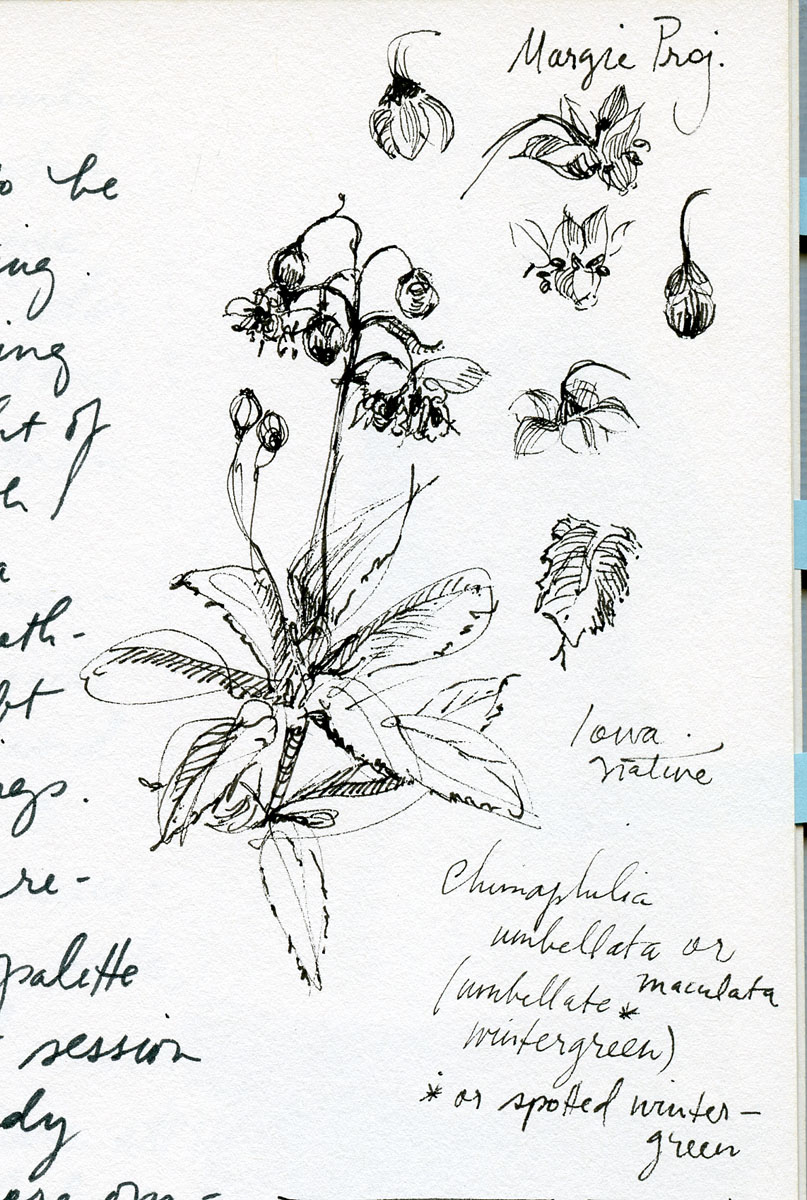 Margie Proj.
be
ing.
ing
ht of
a
ath-
bt
ngs.
re-
palette
session
dy
ere om-
Iowa
native
Chimaphilia
umbellata or
maculata
(umbellate *
wintergreen)
* or spotted winter-
green